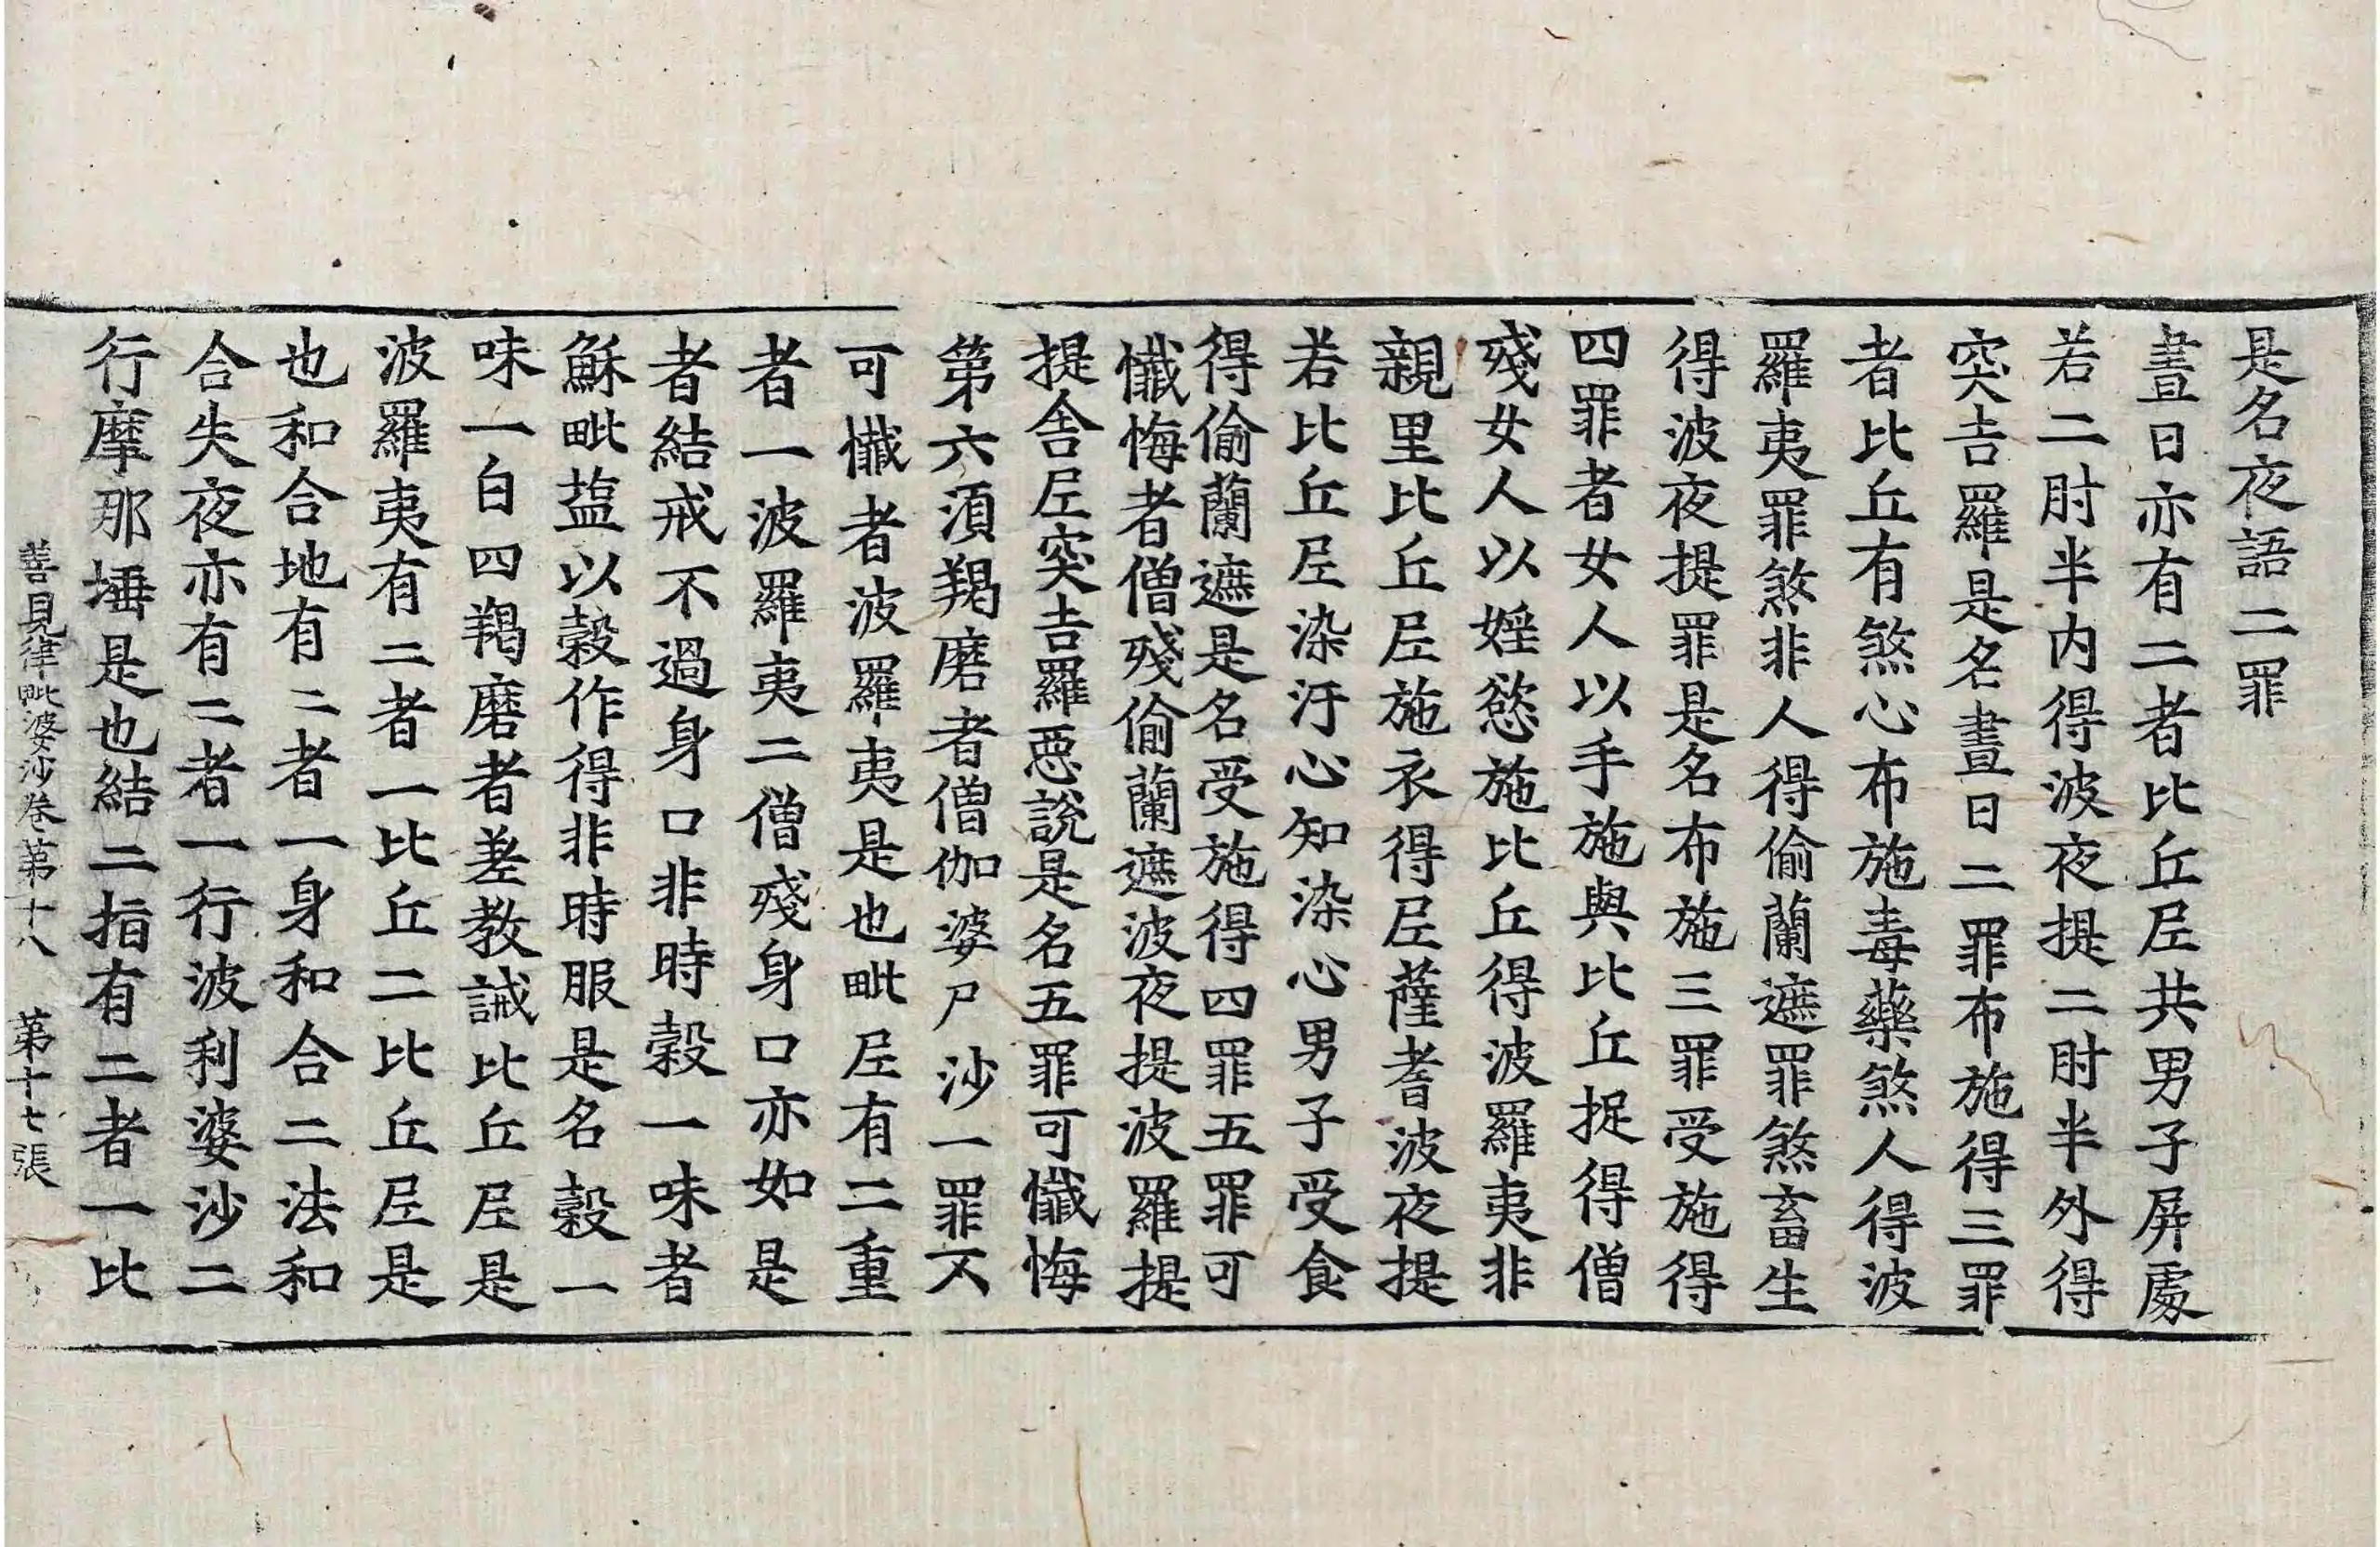 是名夜語二罪
晝日亦有二者比丘尼共男子屏處
若二肘半内得波夜提二肘半外得
突吉羅是名晝日二罪布施得三罪
者比丘有煞心布施毒藥煞人得波
羅夷罪煞非人得偷蘭遮罪煞畜生
得波夜提罪是名布施三罪受施得
四罪者女人以手施與比丘捉得僧
殘女人以婬慾施比丘得波羅夷非
親里比丘尼施衣得尼薩耆波夜提
若比丘尼染汙心知染心男子受食
得偷蘭遮是名受施得四罪五罪可
懺悔者僧殘偷蘭遮波夜提波羅提
提舍尼突吉羅惡說是名五罪可懺悔
第六須羯磨者僧伽婆尸沙一罪不
可懺者波羅夷是也毗尼有二重
者一波羅夷二僧殘身口亦如是
者結戒不過身口非時穀一味者
穌毗塩以穀作得非時服是名穀一
味一白四羯磨者差教誡比丘尼是
波羅夷有二者一比丘二比丘尼是
也和合地有二者一身和合二法和
合失夜亦有二者一行波利婆沙二
行摩那埵是也結二指有二者一比
善見律毗婆沙卷第十八 第十七張